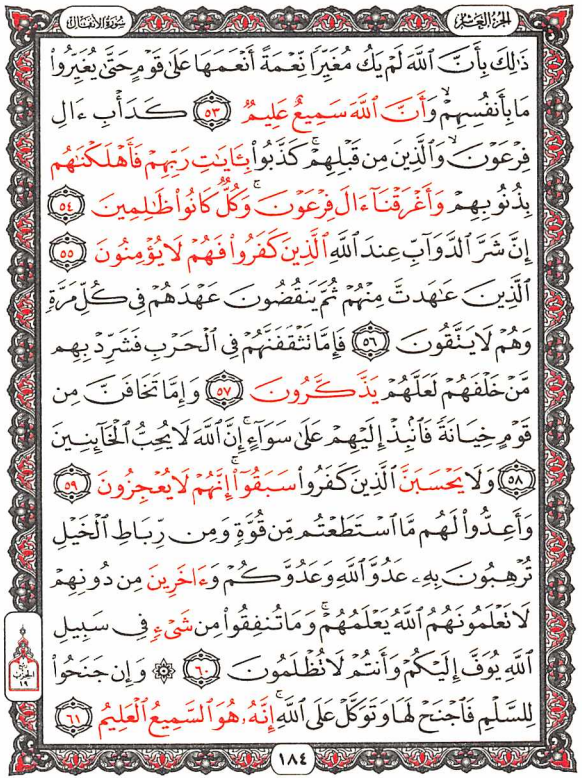 الجزء العاشر
سورة الأنفال
ذَٰلِكَ بِأَنَّ ٱللَّهَ لَمْ يَكُ مُغَيِّرًا نِّعْمَةً أَنْعَمَهَا عَلَىٰ قَوْمٍ حَتَّىٰ يُغَيِّرُوا۟
مَا بِأَنفُسِهِمْ ۙ وَأَنَّ ٱللَّهَ سَمِيعٌ عَلِيمٌ ٥٣ كَدَأْبِ ءَالِ
فِرْعَوْنَ ۙ وَٱلَّذِينَ مِن قَبْلِهِمْ ۚ كَذَّبُوا۟ بِـَٔايَـٰتِ رَبِّهِمْ فَأَهْلَكْنَـٰهُم
بِذُنُوبِهِمْ وَأَغْرَقْنَآ ءَالَ فِرْعَوْنَ ۚ وَكُلٌّ كَانُوا۟ ظَـٰلِمِينَ ٥٤
إِنَّ شَرَّ ٱلدَّوَآبِّ عِندَ ٱللَّهِ ٱلَّذِينَ كَفَرُوا۟ فَهُمْ لَا يُؤْمِنُونَ ٥٥
ٱلَّذِينَ عَـٰهَدتَّ مِنْهُمْ ثُمَّ يَنقُضُونَ عَهْدَهُمْ فِى كُلِّ مَرَّةٍ
وَهُمْ لَا يَتَّقُونَ ٥٦ فَإِمَّا تَثْقَفَنَّهُمْ فِى ٱلْحَرْبِ فَشَرِّدْ بِهِم
مَّنْ خَلْفَهُمْ لَعَلَّهُمْ يَذَّكَّرُونَ ٥٧ وَإِمَّا تَخَافَنَّ مِن
قَوْمٍ خِيَانَةً فَٱنۢبِذْ إِلَيْهِمْ عَلَىٰ سَوَآءٍ ۚ إِنَّ ٱللَّهَ لَا يُحِبُّ ٱلْخَآئِنِينَ
٥٨ وَلَا يَحْسَبَنَّ ٱلَّذِينَ كَفَرُوا۟ سَبَقُوٓا۟ ۚ إِنَّهُمْ لَا يُعْجِزُونَ ٥٩
وَأَعِدُّوا۟ لَهُم مَّا ٱسْتَطَعْتُم مِّن قُوَّةٍ وَمِن رِّبَاطِ ٱلْخَيْلِ
تُرْهِبُونَ بِهِۦ عَدُوَّ ٱللَّهِ وَعَدُوَّكُمْ وَءَاخَرِينَ مِن دُونِهِمْ
لَا تَعْلَمُونَهُمُ ٱللَّهُ يَعْلَمُهُمْ ۚ وَمَا تُنفِقُوا۟ مِن شَىْءٍ فِى سَبِيلِ
ٱللَّهِ يُوَفَّ إِلَيْكُمْ وَأَنتُمْ لَا تُظْلَمُونَ ٦٠ ۞ وَإِن جَنَحُوا۟
لِلسَّلْمِ فَٱجْنَحْ لَهَا وَتَوَكَّلْ عَلَى ٱللَّهِ ۚ إِنَّهُۥ هُوَ ٱلسَّمِيعُ ٱلْعَلِيمُ ٦١
الحزب
١٩
١٨٤